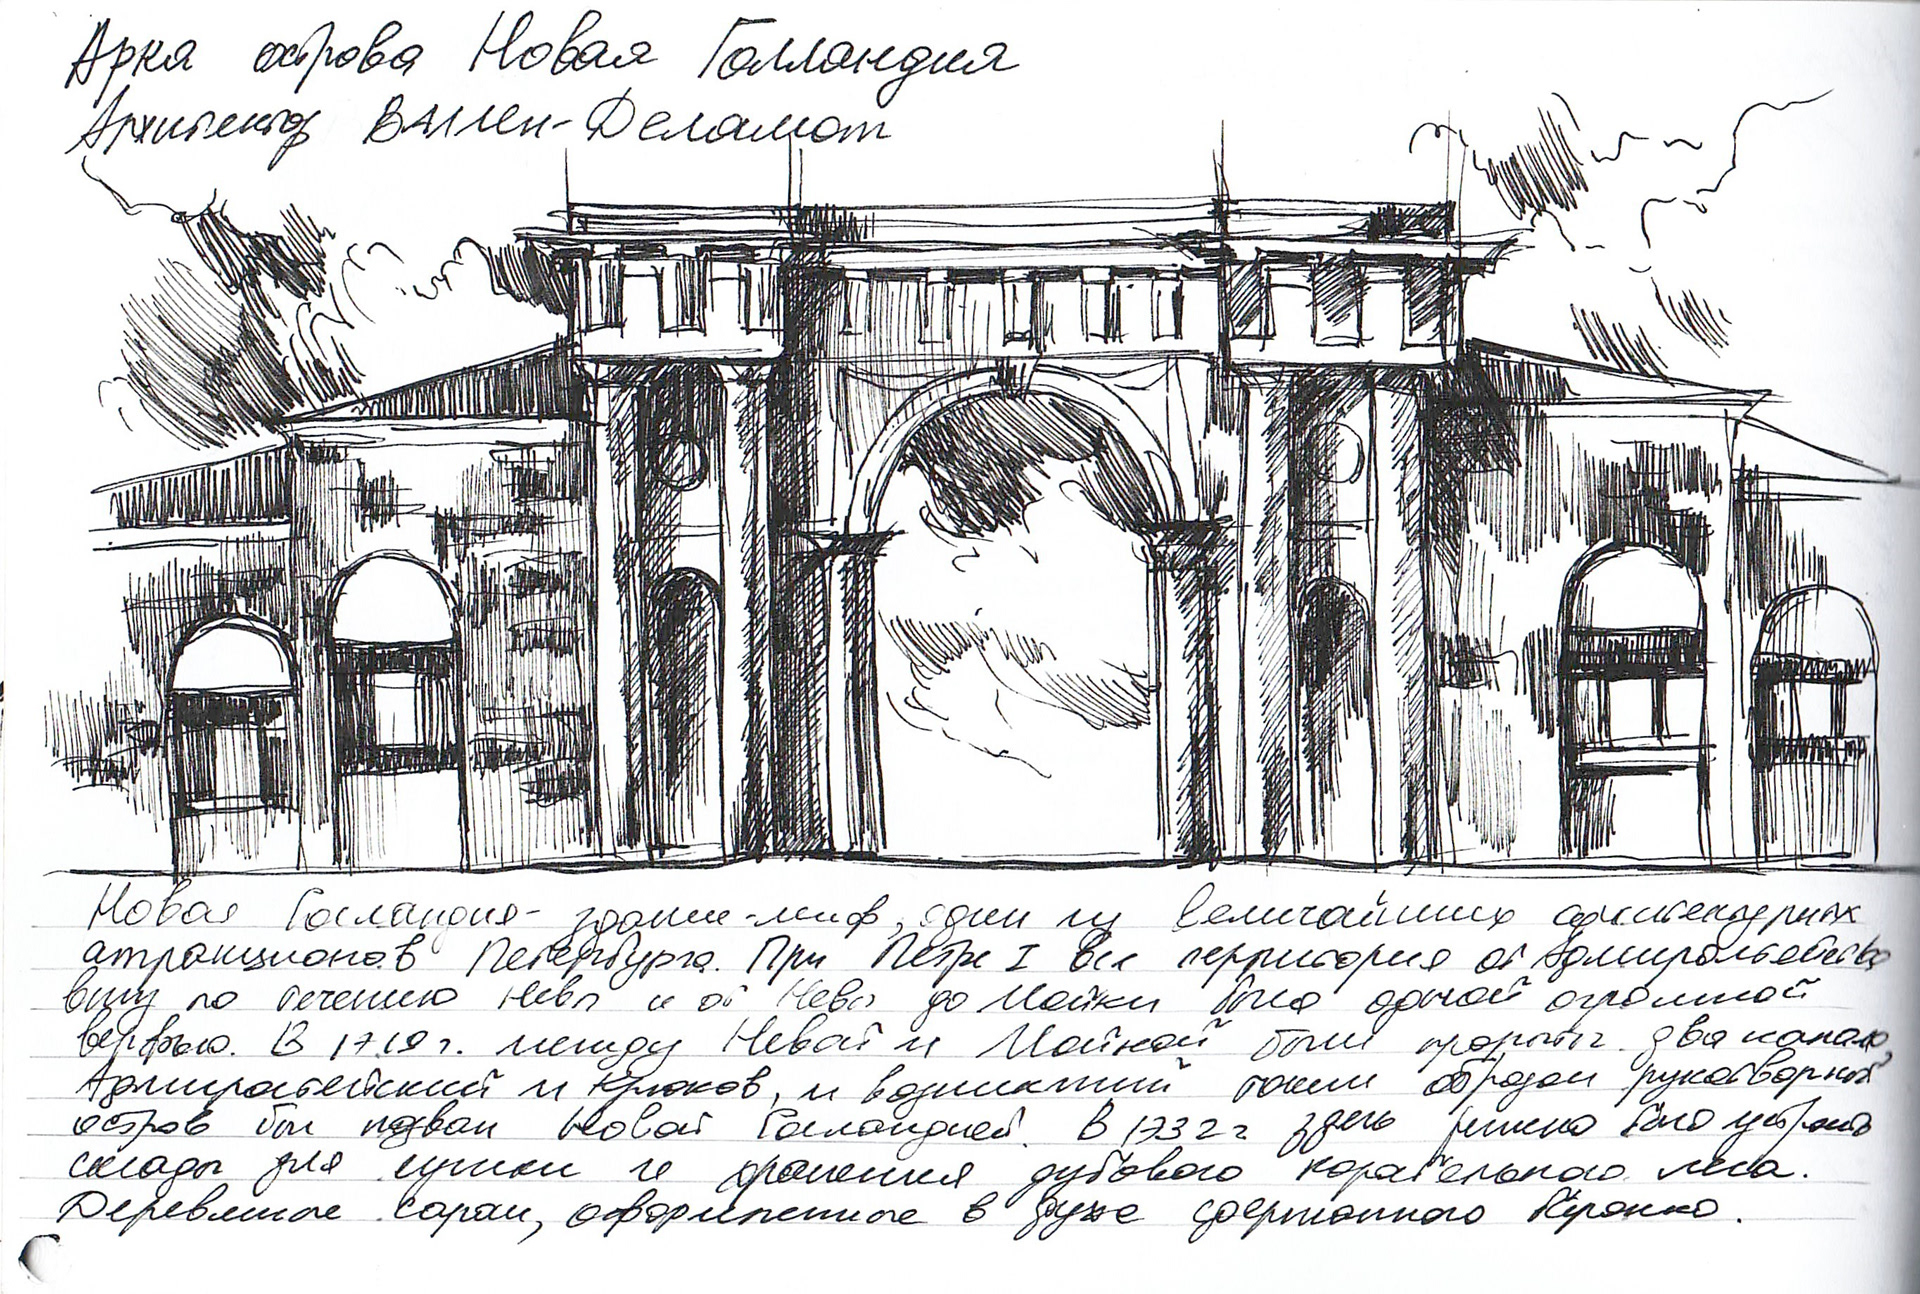 Арка острова Новая Голландия
Архитектор Валлен-Деламот
Новая Голландия - здание-миф, один из величайших архитектурных
аттракционов Петербурга. При Петре I вся территория от Адмиралтейства
вниз по течению Невы и от Невы до Мойки была одной огромной
верфью. В 1719 г. между Невой и Мойкой были прорыты два канала,
Адмиралтейский и Крюков, и возникший таким образом рукотворный
остров был назван Новой Голландией. В 1732 г здесь решено было устроить
склады для сушки и хранения дубового корабельного леса.
Деревянные сараи, оформленные в духе сдержанного барокко.